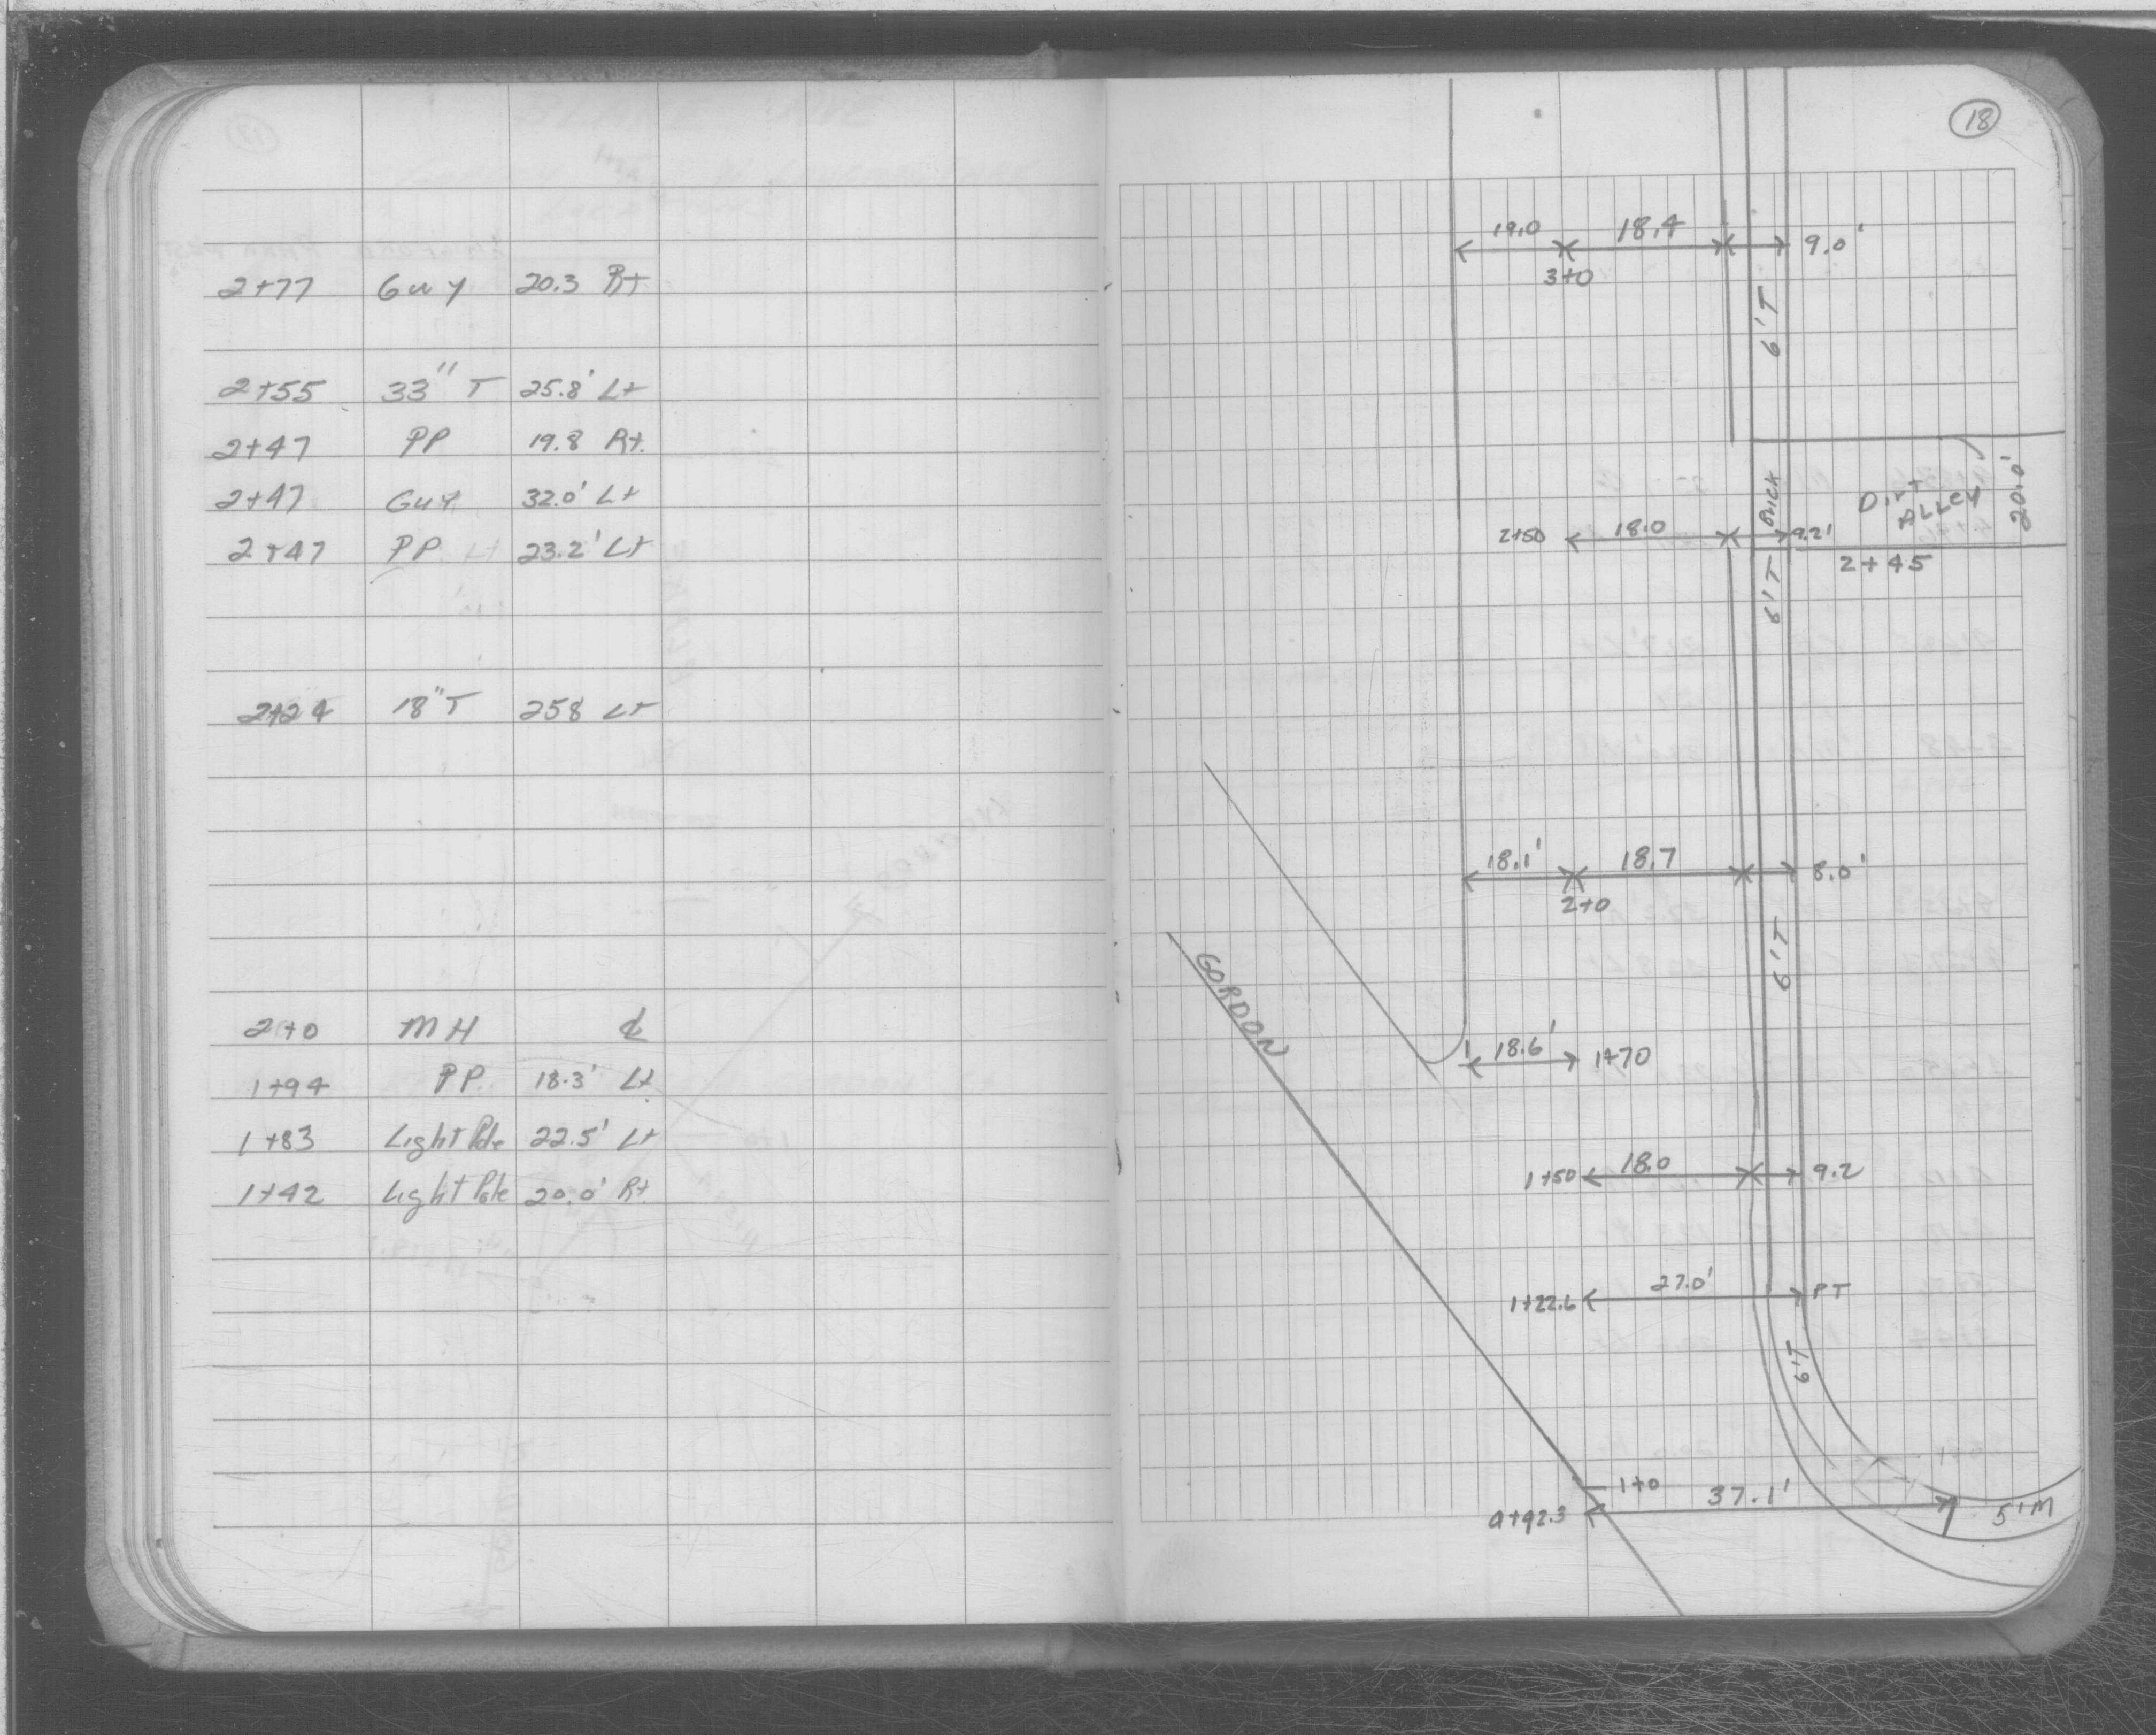 2+77 Guy 20.3 Rt
2+55 33" T 25.8' Lt
2+47 PP 19.8 Rt.
2+47 Guy 32.0' Lt
2+47 PP 23.2' Lt
2+24 18" T 258 Lt
2+0 MH ℄
1+94 PP. 18.3' Lt
1+83 Light Pole 22.5' Lt
1+42 Light Pole 20.0' Rt.
18
19.0 18.4 9.0'
3+0
6'T
Brick
Dirt
Alley
20.0'
2+50 18.0 9.2'
2+45
6'T
18.1' 18.7 8.0'
2+0
6'T
GORDON
18.6' 1+70
1+50 18.0 9.2
27.0'
1+22.6 PT
6'T
1+0 37.1'
0+92.3 5'M